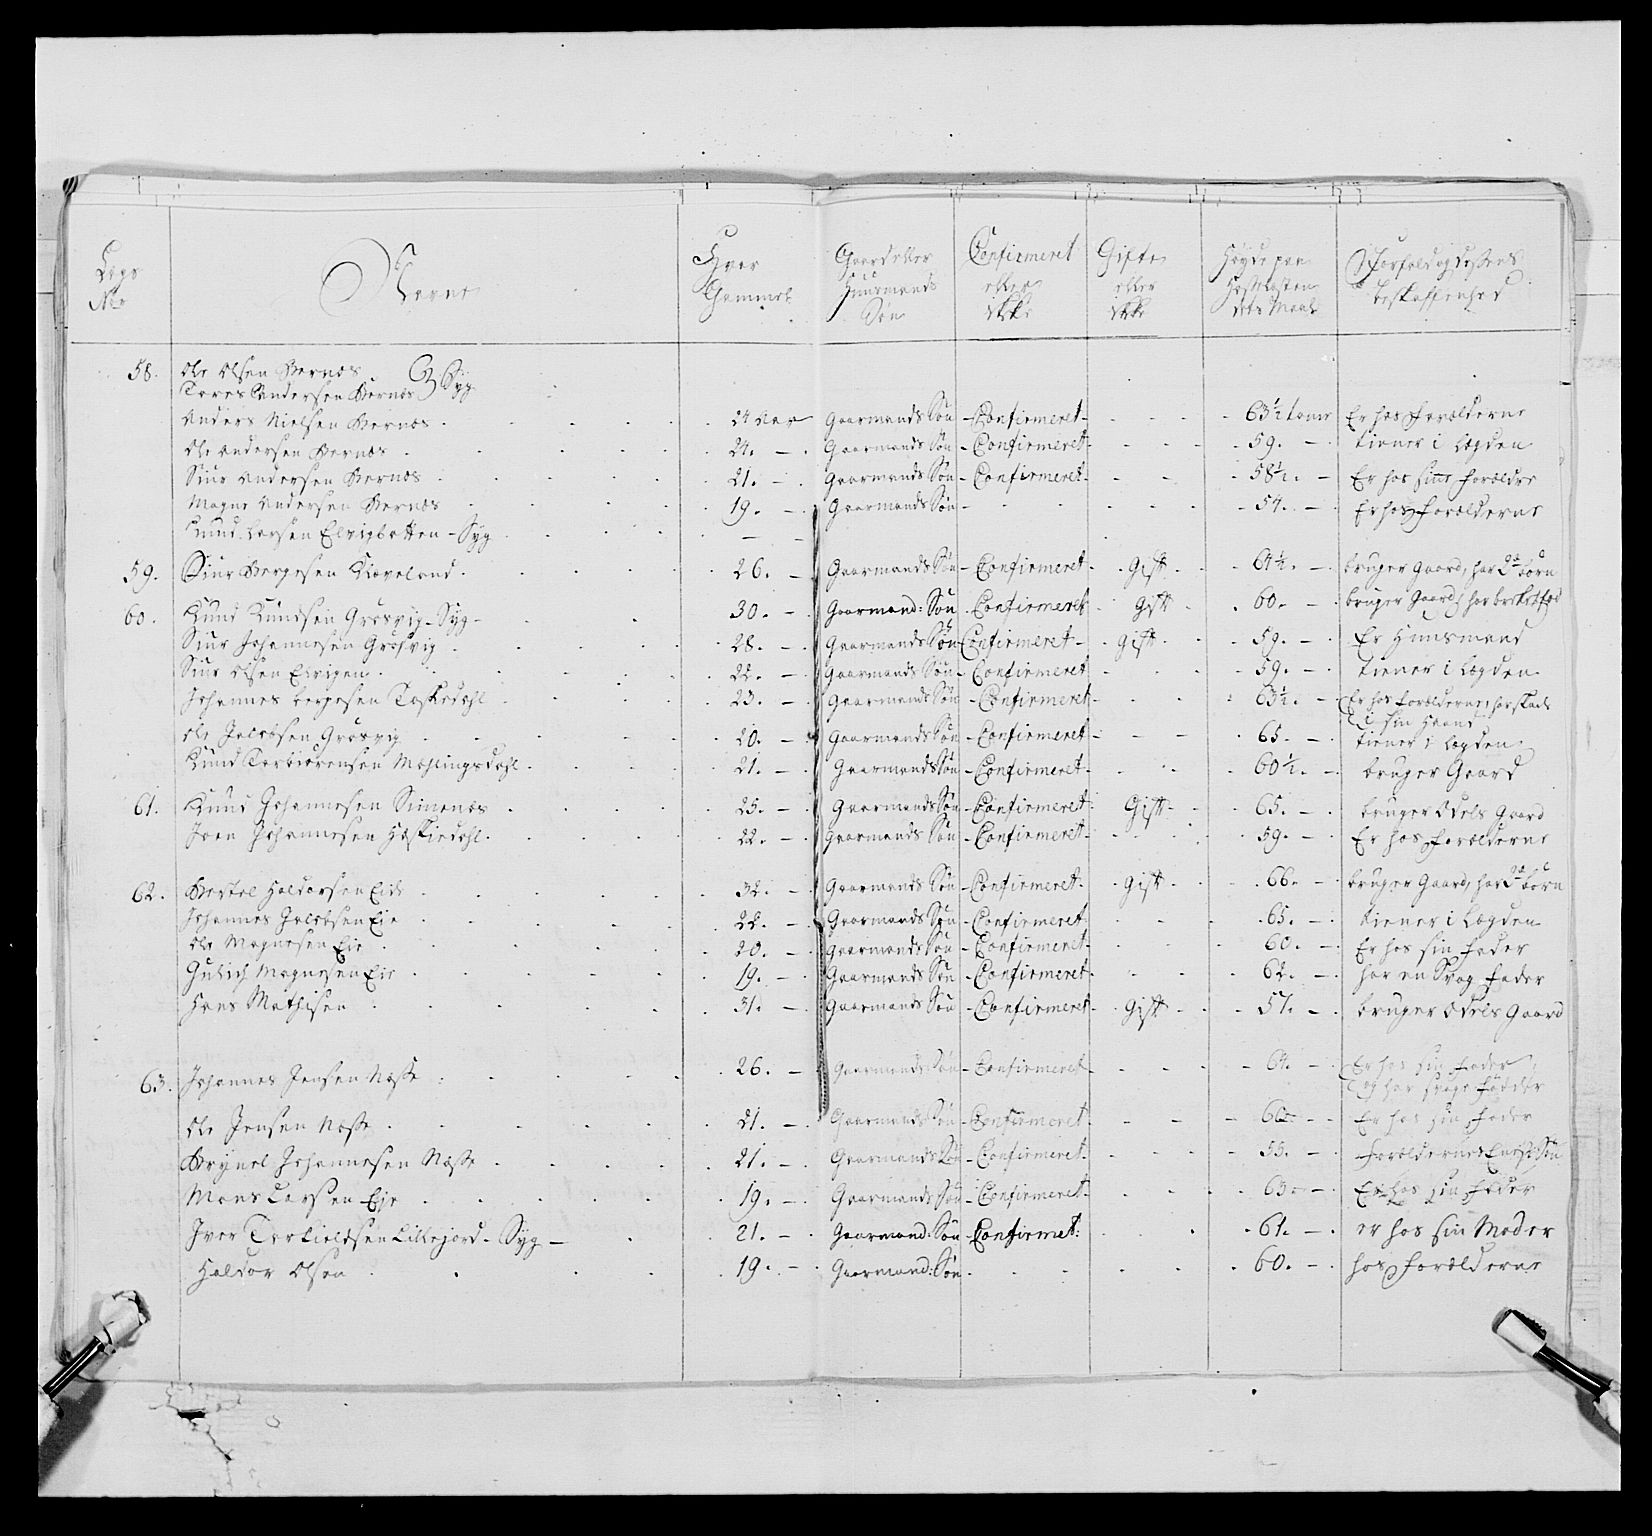 Lægs No | Navne | Hvor Gammel | Gaard eller Huusmands Søn | Confirmeret eller ikke | Gifte eller ikke | Høyde paa Maal | beskaffenhed
58. Ole Olsen Bernæs
Andersen Bernæs Syg
Anders Nielsen Bernæs 24 Aar Gaarmands Søn Confirmeret 63½ tomr Er hos forældrene
Ole Andersen Bernæs 24. Gaarmands Søn Confirmeret 59. tiener i Lægden
Siur Andersen Bernæs 21. Gaarmands Søn Confirmeret 58½. Er hos sine forældre
Magne Andersen Bernæs 19. Gaarmands Søn 54. Er hos forældrene
Knud Larsen Syg
59. Siur Børgesen Kleveland 26. Gaarmands Søn Confirmeret Gift 64½. bruger gaard, har 2de børn
60. Knud Knudsen Grøsvig Syg 30. Gaarmand: Søn Confirmeret Gift 60. bruger Gaard, har
Siur Johannesen Grøsvig 28. Gaarmands Søn Confirmeret gift 59. Er Huusmand
Siur Olsen Elvigen 22. Gaarmands Søn Confirmeret 59. tiener i Lægden
Johannes Børgesen 23. Gaarmands Søn Confirmeret 63½. Er hos forældrene, har skade
i sin Haand
Ole Jacobsen Grøsvig 20. Gaarmands Søn Confirmeret 65. tiener i Lægden
Knud Torbiørensen 21. Gaarmands Søn Confirmeret 60½. bruger Gaard
61. Knud Johannesen Simenæs 25. Gaarmands Søn Confirmeret Gift 65. bruger Odels Gaard
Joen Johannesen 22. Gaarmands Søn Confirmeret 59. Er hos forældrene
62. Haldorsen Eide 32. Gaarmands Søn Confirmeret gift 66. bruger Gaard, har børn
Johannes Jacobsen Eie 22. Gaarmands Søn Confirmeret 65. tiener i Lægden
Ole Magnesen Eie 20. Gaarmands Søn Confirmeret 60. Er hos sin fader
Gulich Magnesen Eie 19. Gaarmands Søn Confirmeret 62. har en Svag fader
Hans Mathisen 31. Gaarmands Søn Confirmeret Gift 57. bruger Odels Gaard
63. Johannes Jensen Næsse 26. Gaarmands Søn Confirmeret 64. Er hos sin fader
og har svage fødder
Ole Jensen Næsse 21. Gaarmands Søn Confirmeret Er hos sin fader
Brynel Johannesen Næsse 21. Gaarmands Søn Confirmeret 55. forældrenes Søn
Mons Larsen Eje 19. Gaarmands Søn Confirmeret 63 Er hos sin fader
Iver Torkieldsen Lillejord. Syg 21. Gaarmand: Søn Confirmet. 61. er hos sin Moder
Haldor Olsen 19. Gaarmand: Søn 60. hos forældrene